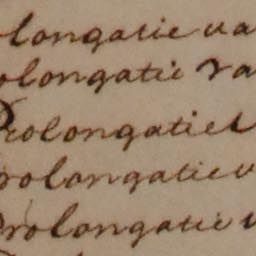 olongatie va
olongatie va
Prolongatie v
rolongatie v
Prolongatie v